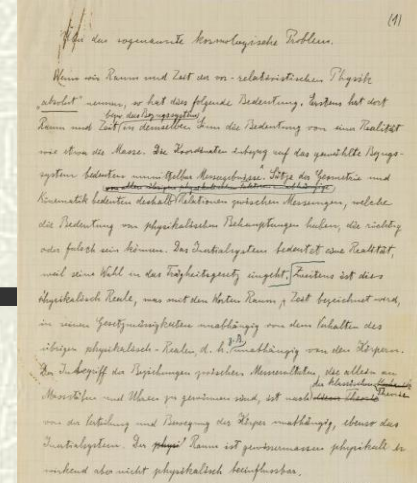 (1)
Über das sogenannte kosmologische Problem.
Wenn wir Raum und Zeit der vor-relativistischen Physik
„absolut" nennen, so hat das folgende Bedeutung. Erstens hat dort
bezw. das Bezugssystem
Raum und Zeit in demselben Sinn die Bedeutung von einer Realität
wie etwa die Masse. Die Koordinaten inbezug auf das gewählte Bezugs-
system bedeuten unmittelbar Messergebnisse. Sätze der Geometrie und
Kinematik bedeuten deshalb Relationen zwischen Messungen, welche
die Bedeutung von physikalischen Behauptungen haben, die richtig
oder falsch sein können. Das Inertialsystem bedeutet eine Realität,
weil seine Wahl in das Trägheitsgesetz eingeht. Zweitens ist dies
physikalisch Reale, was mit den Worten Raum, Zeit bezeichnet wird,
in seinen Gesetzmässigkeiten unabhängig von dem Verhalten des
übrigen physikalisch-Realen, d. h. z.B. unabhängig von den Körpern.
Der Inbegriff der Beziehungen zwischen Messresultaten, die allein an
Massstäben und Uhren zu gewinnen sind, ist nach der klassischen Theorie
von der Verteilung und Bewegung der Körper unabhängig, ebenso das
Inertialsystem. Der Raum ist gewissermassen physikalisch
wirkend aber nicht physikalisch beeinflussbar.